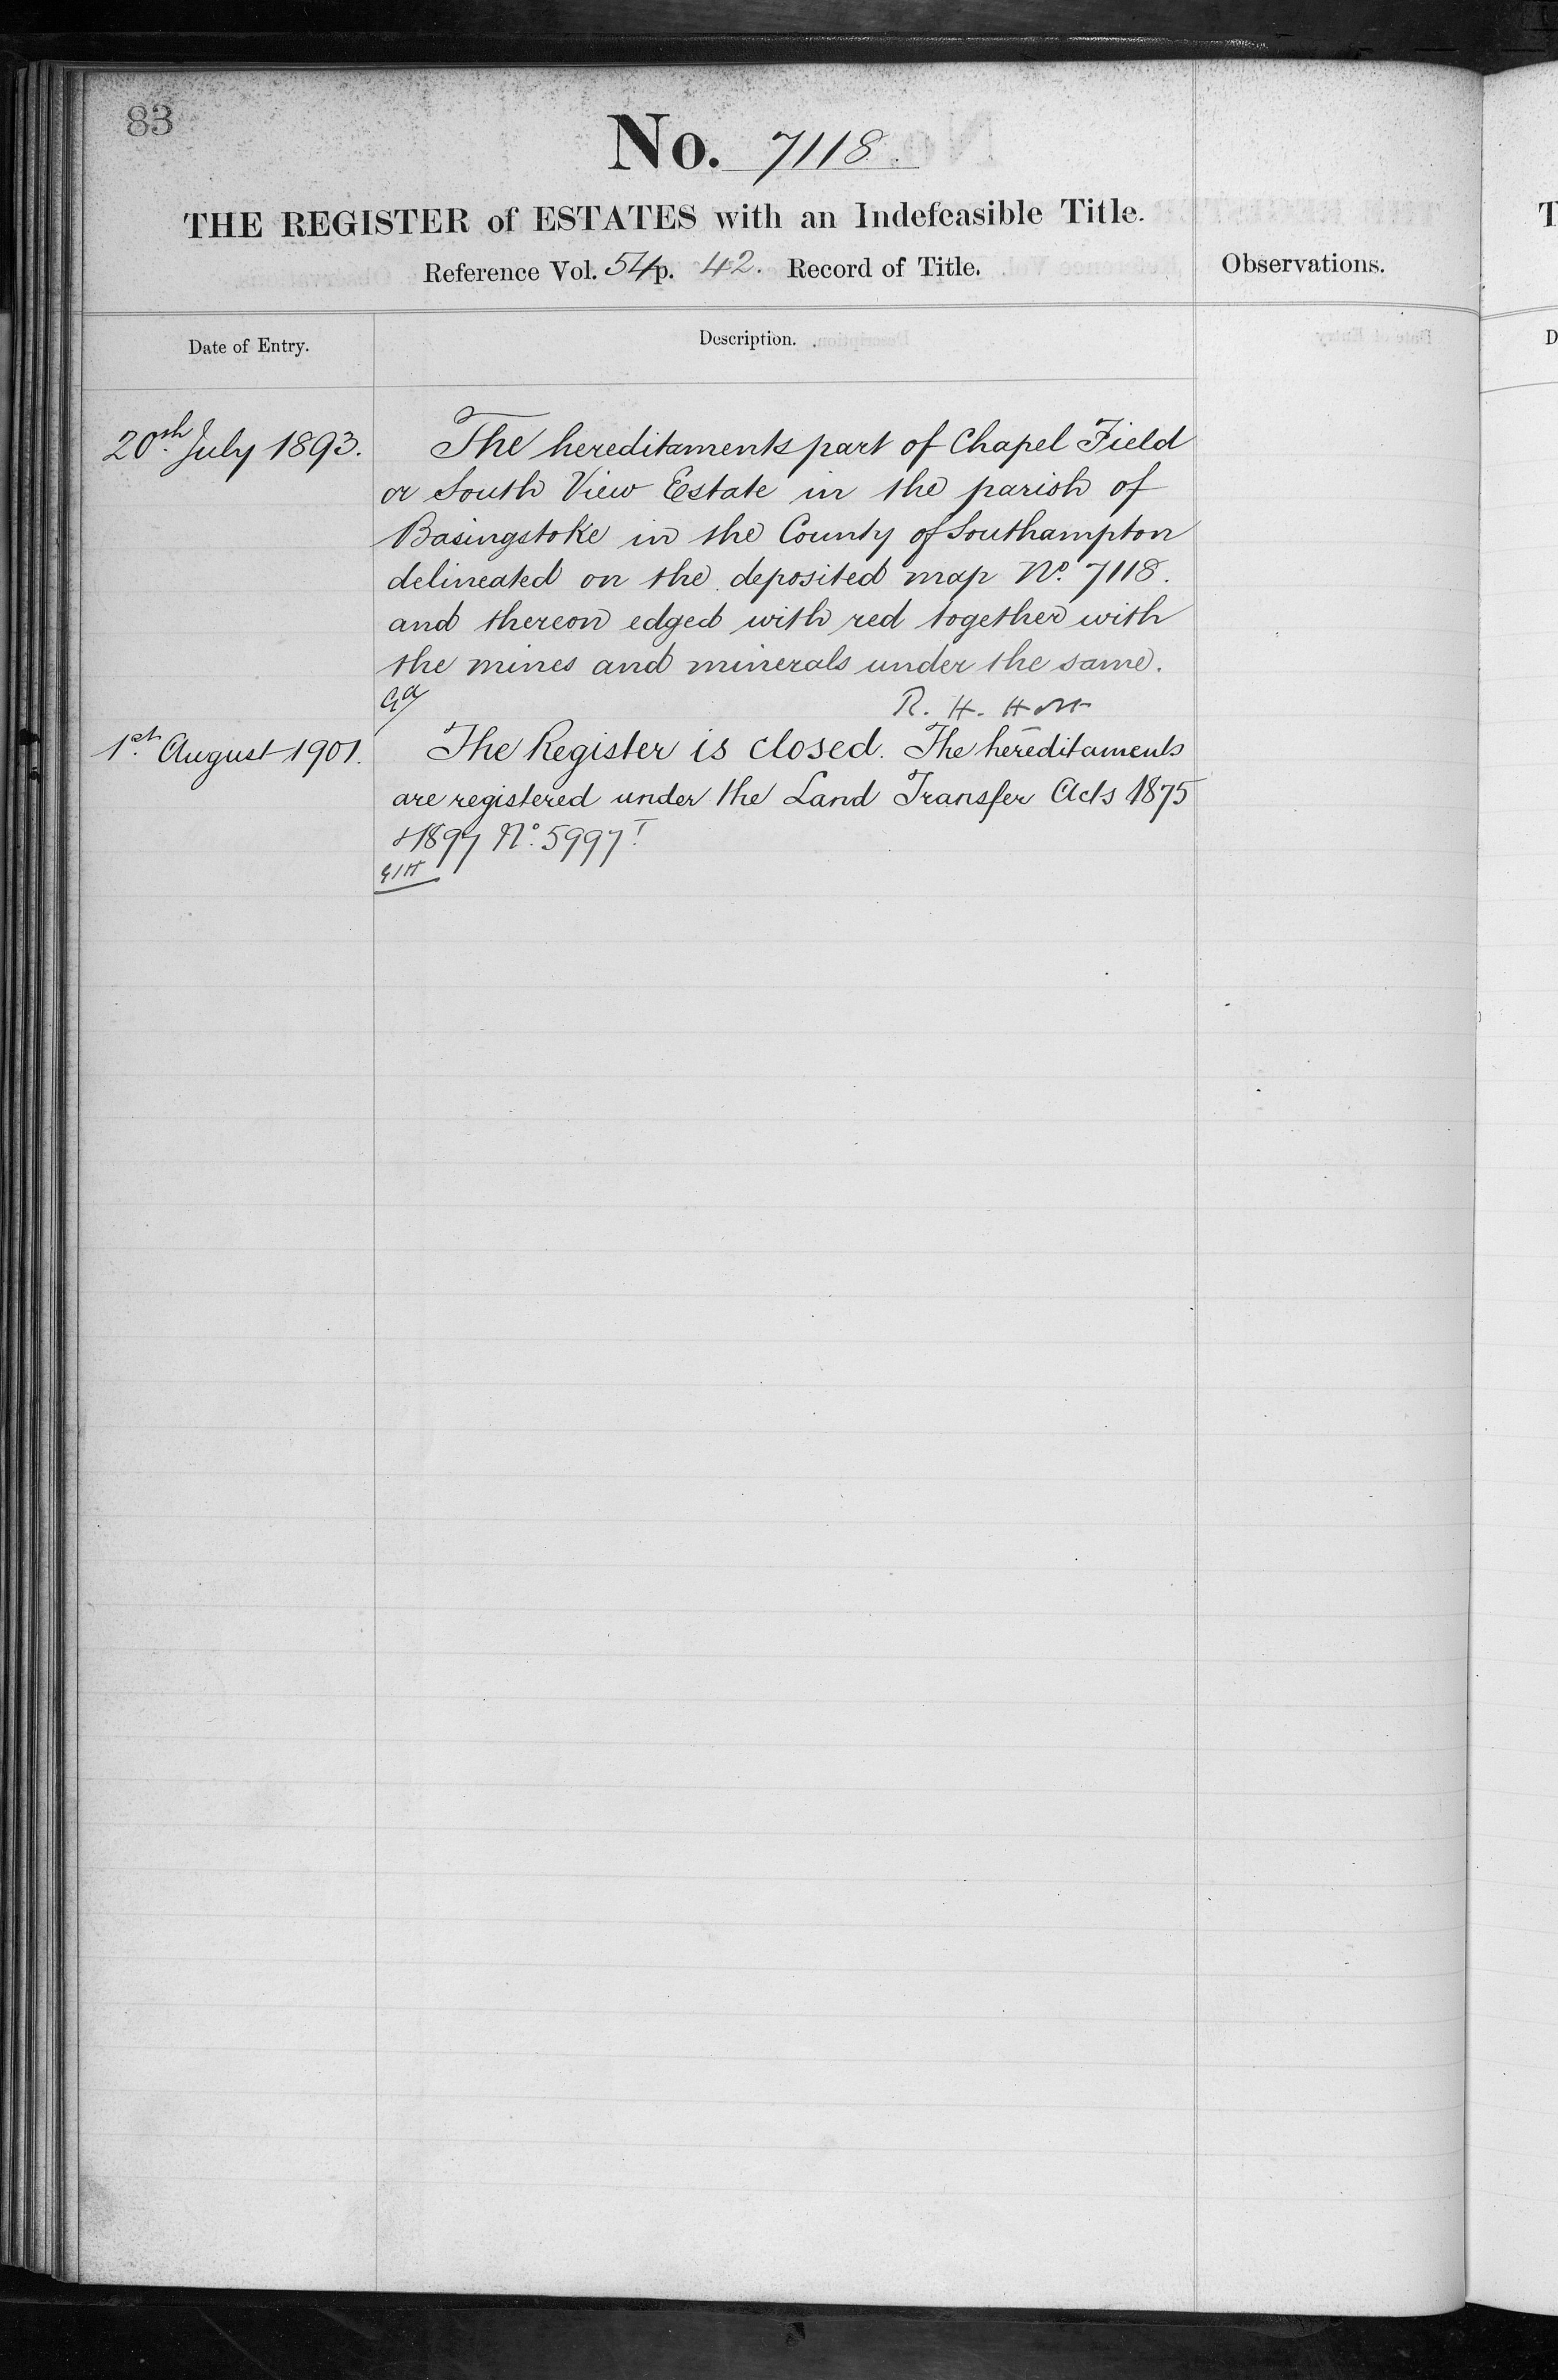 83
No. 7118.
THE REGISTER of ESTATES with an Indefeasible Title.
Reference Vol. 54 p. 42. Record of Title.
Observations.
Date of Entry.
Description.
20th. July 1893.
The hereditaments part of Chapel Field
or South View Estate in the parish of
Basingstoke in the County of Southampton
delineated on the deposited map No. 7118.
and thereon edged with red together with
the mines and minerals under the same.
R. H. Holt
1st. August 1901.
The Register is closed. The hereditaments
are registered under the Land Transfer Acts 1875
& 1897 No. 5997 T
T
D